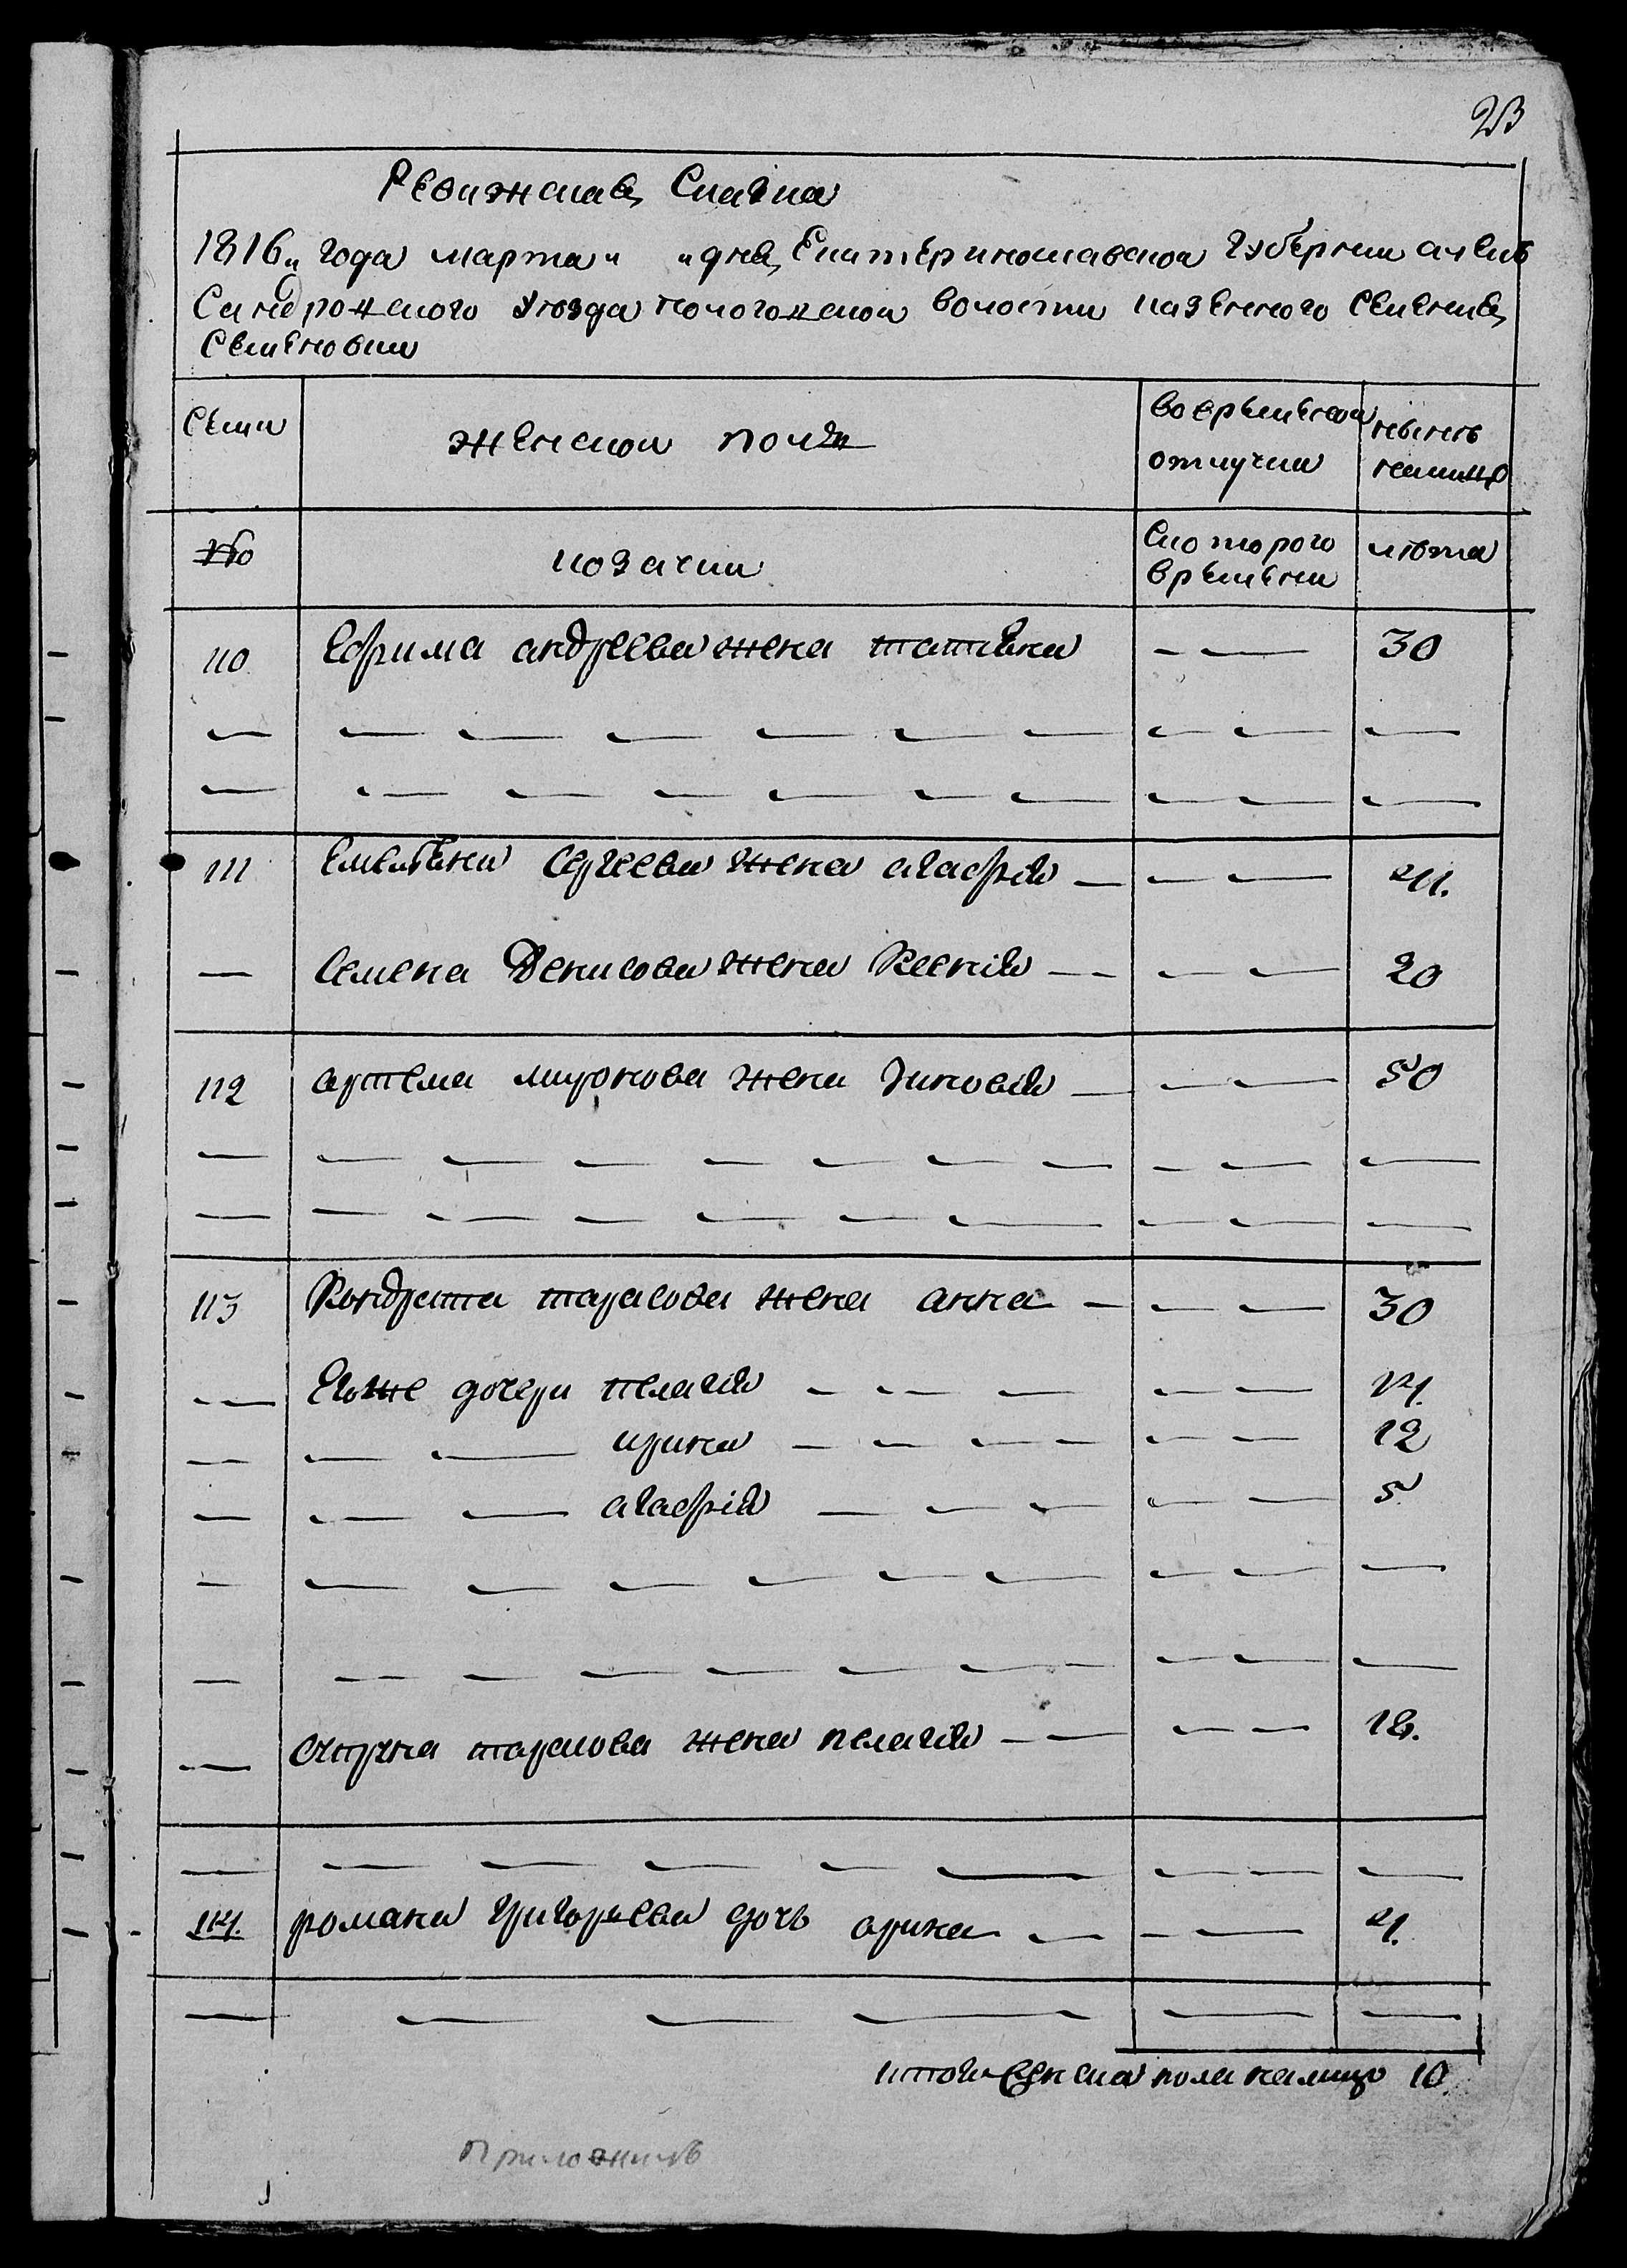 23
Ревижская Сказка
1816„ года марта „ „ дня Екатеринославской губернии алек
сандровского уезда пологовской волости казенного селения
Семеновки
Семи
женской пол
во временной отлучки
ныне налицо
№
козачки
С которого времени
лета
110 Ефрима андреева жена татияна — — 30
— — — — — — — — — —
— — — — — — — — — —
111 Емелияна Сергеева жена агафия — — — 41.
— Семена Денисова жена Ксения — — — — 20
112 артема миронова жена Зиновия — — — 50
— — — — — — — — — — —
— — — — — — — — — —
113 Кондрата тарасова жена анна — — — 30
— Егоже дочери пелагия — — — — — 14.
— — — ирина — — — — — — 12
— — — агафия — — — — — 5
— — — — — — — — — —
— — — — — — — — — —
— тарасова жена пелагия — — — — 18.
— — — — — — — — —
114. романа григорьева дочь арина — — — 4.
— — — — — —
итого женска пола налицо 10